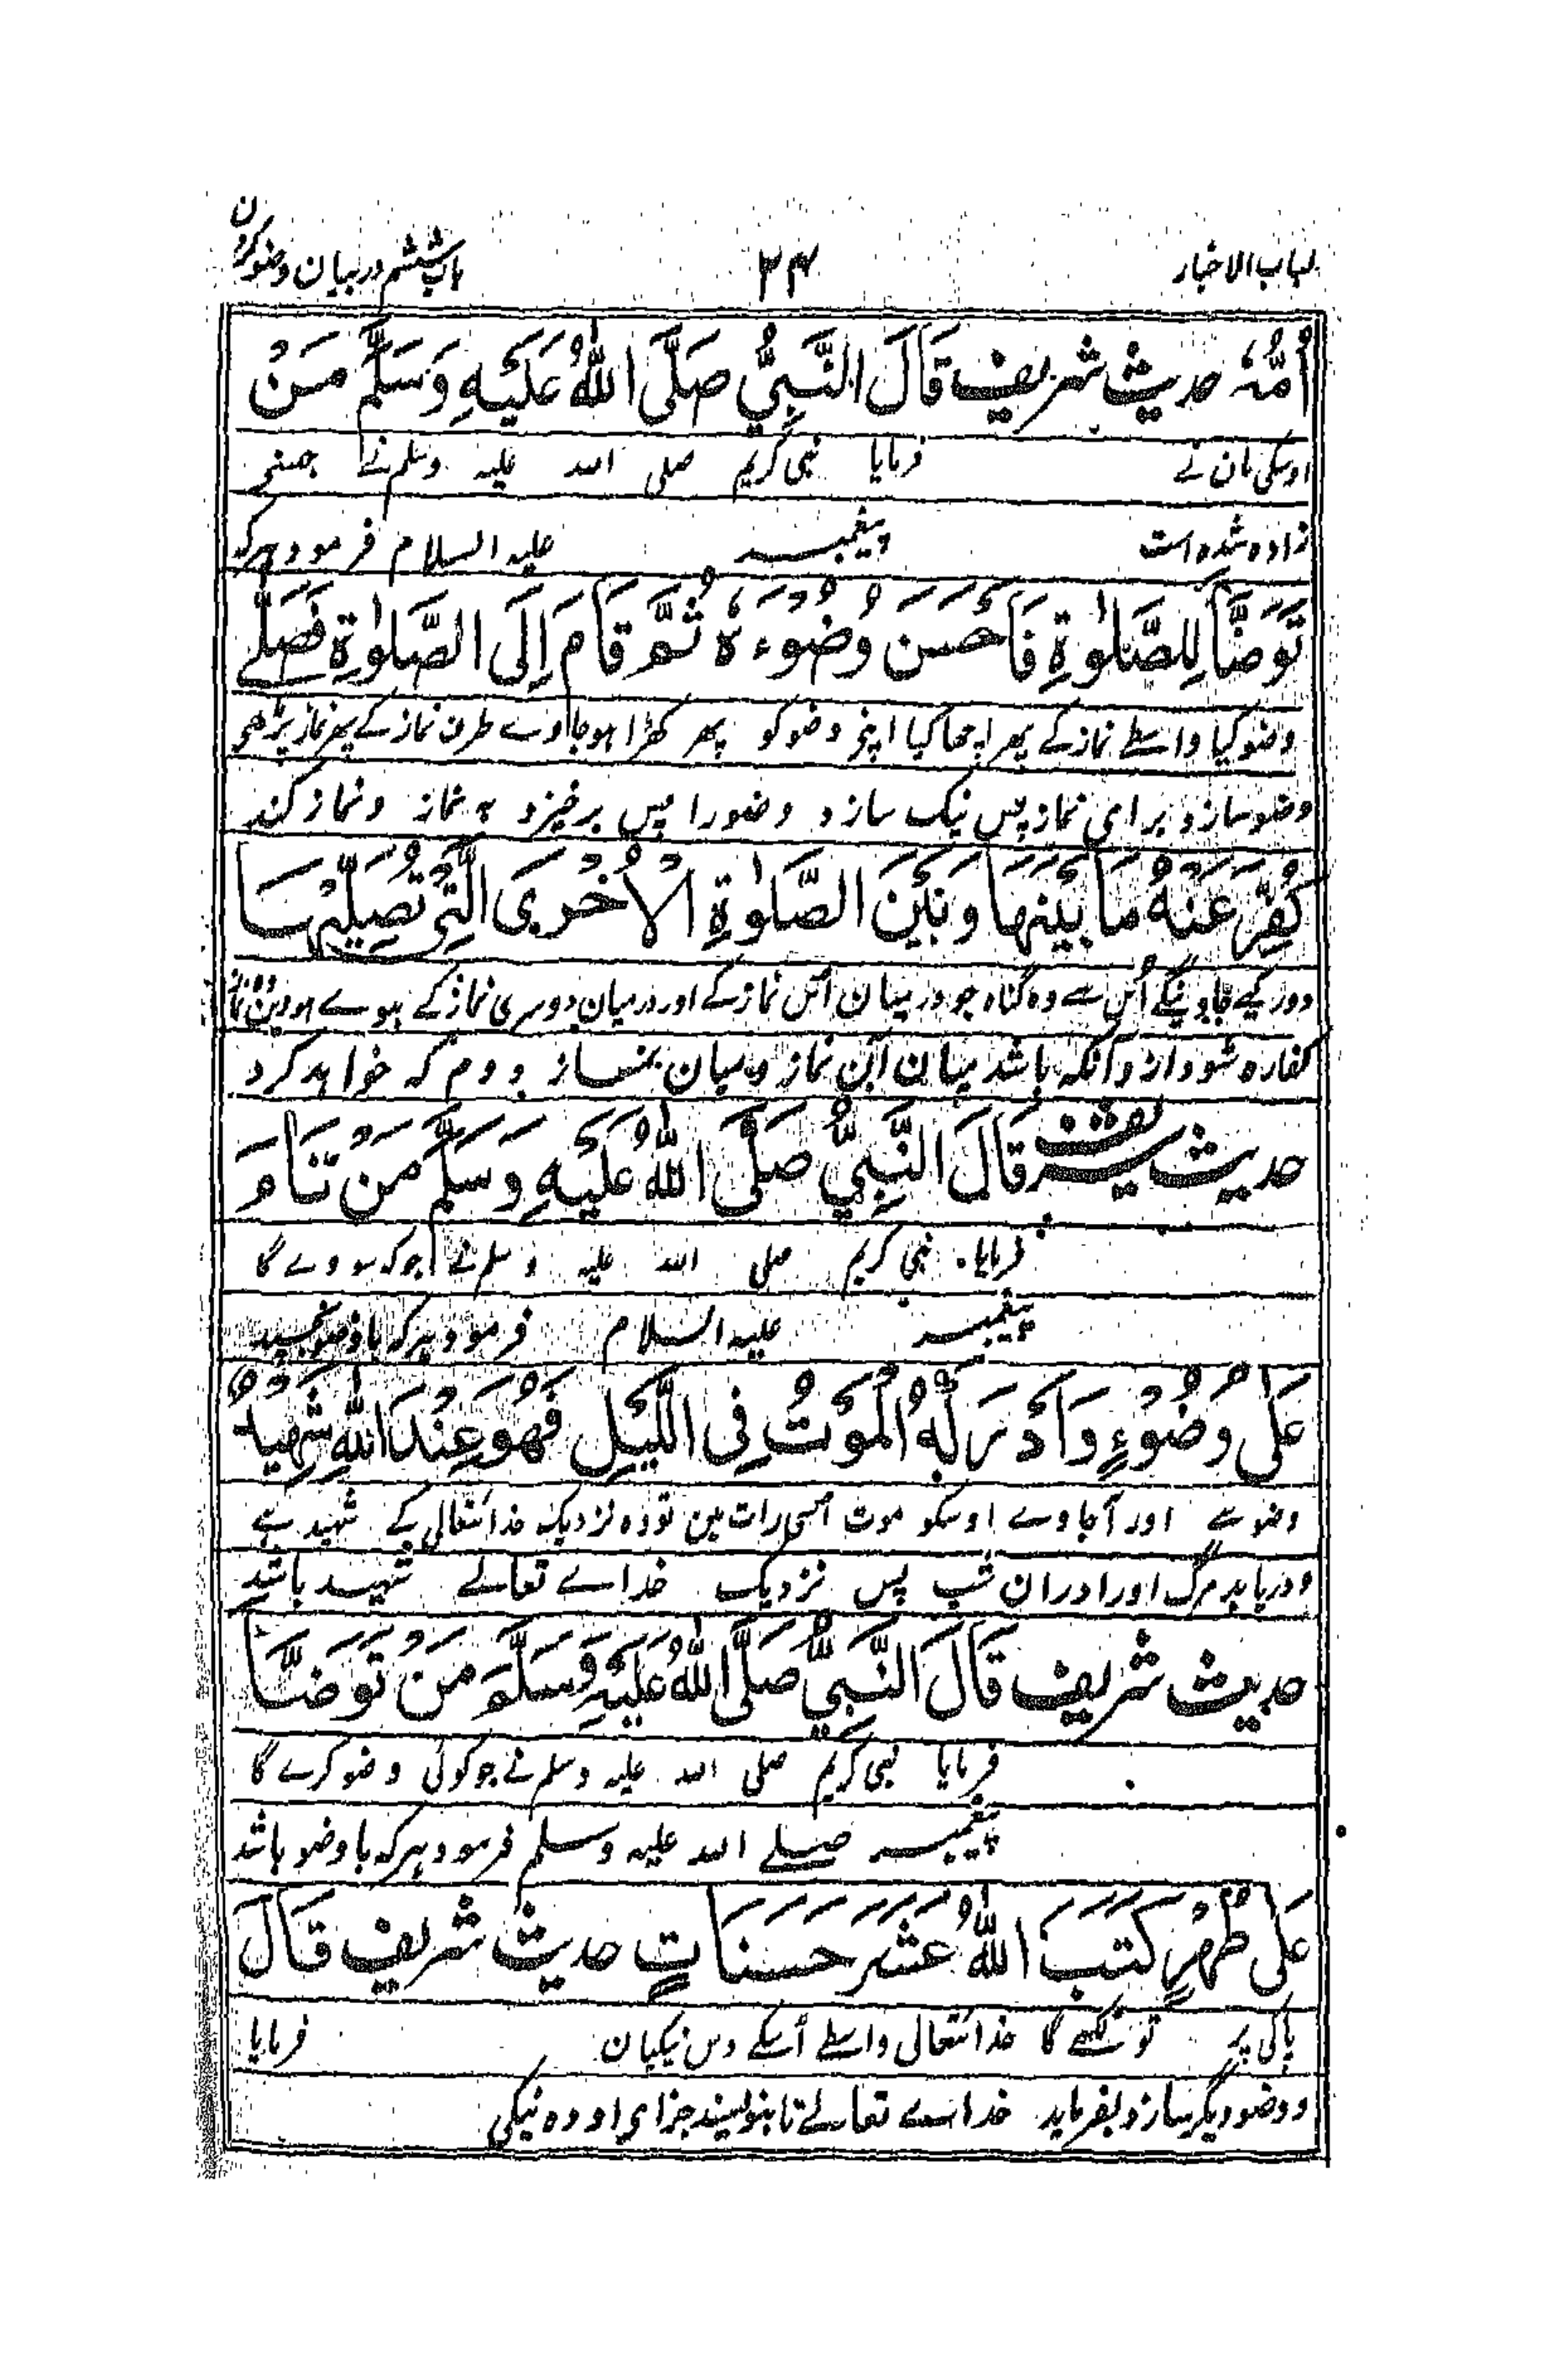 لباب الاخبار
۳۴
باب ششم در بیان وضو کردن
اُمُّہٗ حدیث شریف قَالَ النَّبِیُّ صَلَّی اللّٰہُ عَلَیْہِ وَسَلَّمَ مَنْ
اوسکی مان نے فرمایا نبی کریم صلی اللہ علیہ وسلم نے جسنے
زادہ شدہ است پیغمبر علیہ السلام فرمود ہرکہ
تَوَضَّأَ لِلصَّلٰوۃِ فَأَحْسَنَ وُضُوْءَہٗ ثُمَّ قَامَ اِلَی الصَّلٰوۃِ فَصَلّٰے
وضو کیا واسطے نماز کے پھر اچھا کیا اپنے وضو کو پھر کھڑا ہو جاوے طرف نماز کے پھر نماز پڑھی
وضو سازد برای نماز پس نیک سازد وضو را پس برخیزد بہ نماز و نماز کند
کُفِّرَ عَنْہُ مَا بَیْنَھَا وَبَیْنَ الصَّلٰوۃِ الْاُخْرٰی الَّتِیْ تُصَلِّیْہَا
دور کیے جاوینگے اُس سے وہ گناہ جو درمیان اُس نماز کے اور درمیان دوسری نماز کے ہوے ہووین
کفارہ شود از و آنکہ باشد میان این نماز و میان نماز دوم کہ خواہد کرد
حدیث شریف قَالَ النَّبِیُّ صَلَّی اللّٰہُ عَلَیْہِ وَسَلَّمَ مَنْ نَامَ
فرمایا نبی کریم صلی اللہ علیہ وسلم نے جو کہ سووے گا
پیغمبر علیہ السلام فرمود ہرکہ باوضو بخسپد
عَلٰی وُضُوْءٍ وَاَدْرَکَہُ الْمَوْتُ فِی اللَّیْلِ فَھُوَ عِنْدَ اللّٰہِ شَھِیْدٌ
وضو سے اور آجاوے اوسکو موت اُسی رات مین تو وہ نزدیک خدا تعالی کے شہید ہے
و دریابد مرگ او را دران شب پس نزدیک خداے تعالے شہید باشد
حدیث شریف قَالَ النَّبِیُّ صَلَّی اللّٰہُ عَلَیْہِ وَسَلَّمَ مَنْ تَوَضَّأَ
فرمایا نبی کریم صلی اللہ علیہ وسلم نے جو کوئی وضو کرے گا
پیغمبر صلے اللہ علیہ وسلم فرمود ہرکہ با وضو باشد
عَلٰی طُھْرٍ کَتَبَ اللّٰہُ عَشَرَ حَسَنَاتٍ حدیث شریف قَالَ
پاکی پر تو لکھے گا خدا تعالی واسطے اُسکے دس نیکیان فرمایا
و وضو دیگر سازد بفرماید خداے تعالے تا بنویسند جزای او دہ نیکی